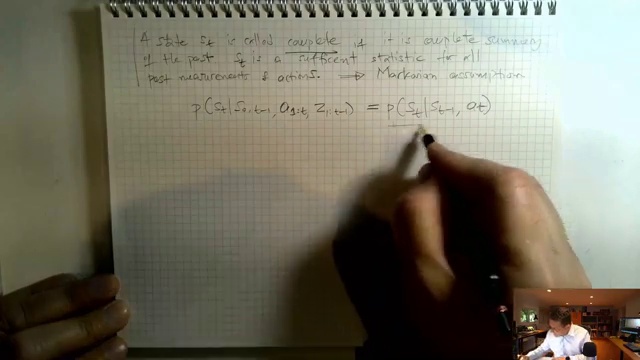 A state St is called complete if it is complete summary
if the past St is a sufficent statistic for all
past measurements & actions. ⟹ Markovian assumption
p(St|S0:t-1, a1:t, Z1:t-1) = p(St|St-1, at)